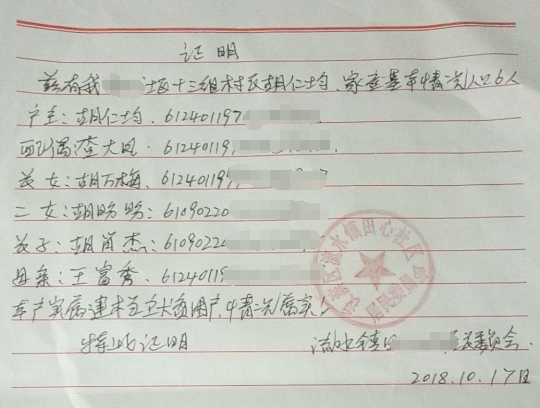 证明
兹有我 社区十三组村民胡仁均,家查基本情况人口6人
户主:胡仁均,61240197
配偶:查大凤.6124011
长女:胡万梅,61240119
二女:胡盼盼:61090220
长子:胡肖杰:6109022
母亲:王富秀,6124019
本户实属建档立卡贫困户,情况属实!
特此证明
流水镇 委员会
2018.10.17日
流水镇田心社区